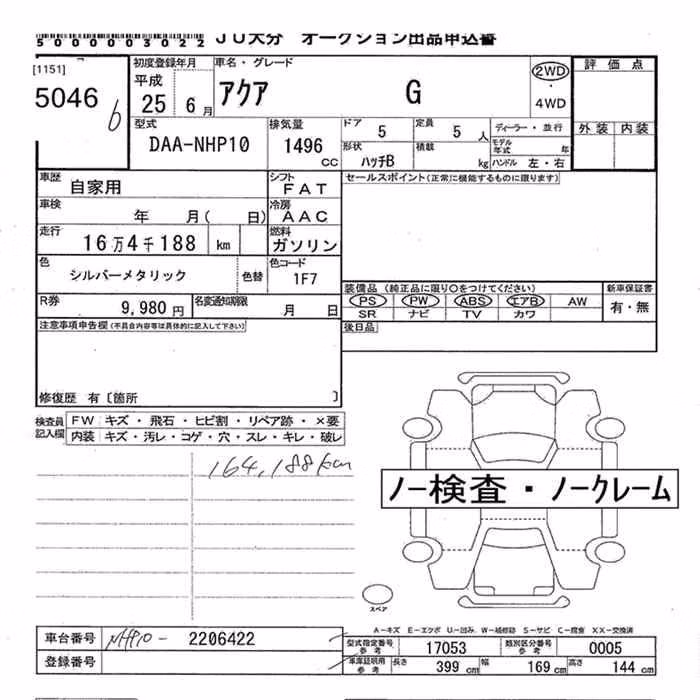 5000003022 JU大分 オークション出品申込書
[1151]
5046
6
初度登録年月 車名・グレード
平成
25 6月
アクア G
2WD
・
4WD
評価点
外装 内装
型式
DAA-NHP10
排気量
1496
CC
ドア 5
定員 5 人
ディーラー・並行
モデル年式 年
形状
ハッチB
積載 kg
ハンドル 左・右
車歴
自家用
シフト
FAT
セールスポイント(正常に機能するものに限ります)
車検
年 月( 日)
冷房
AAC
走行
16万4千188 km
燃料
ガソリン
色
シルバーメタリック
色替
色コード
1F7
装備品(純正品に限り○をつけてください) 新車保証書
PS PW ABS エアB AW
SR ナビ TV カワ
有・無
R券
9,980円
名変通知期限
月 日
後日品
注意事項申告欄(不具合内容等は具体的に記入して下さい)
修復歴 有〔箇所 〕
検査員記入欄
FW キズ・飛石・ヒビ割・リペア跡・×要
内装 キズ・汚レ・コゲ・穴・スレ・キレ・破レ
164,188km
ノー検査・ノークレーム
スペア
A-キズ E-エクボ U-凹み W-補修跡 S-サビ C-腐食 XX-交換済
車台番号 NHP10- 2206422
登録番号
型式指定番号 参考 17053 類別区分番号 参考 0005
車庫証明用 参考 長さ 399 cm 幅 169 cm 高さ 144 cm